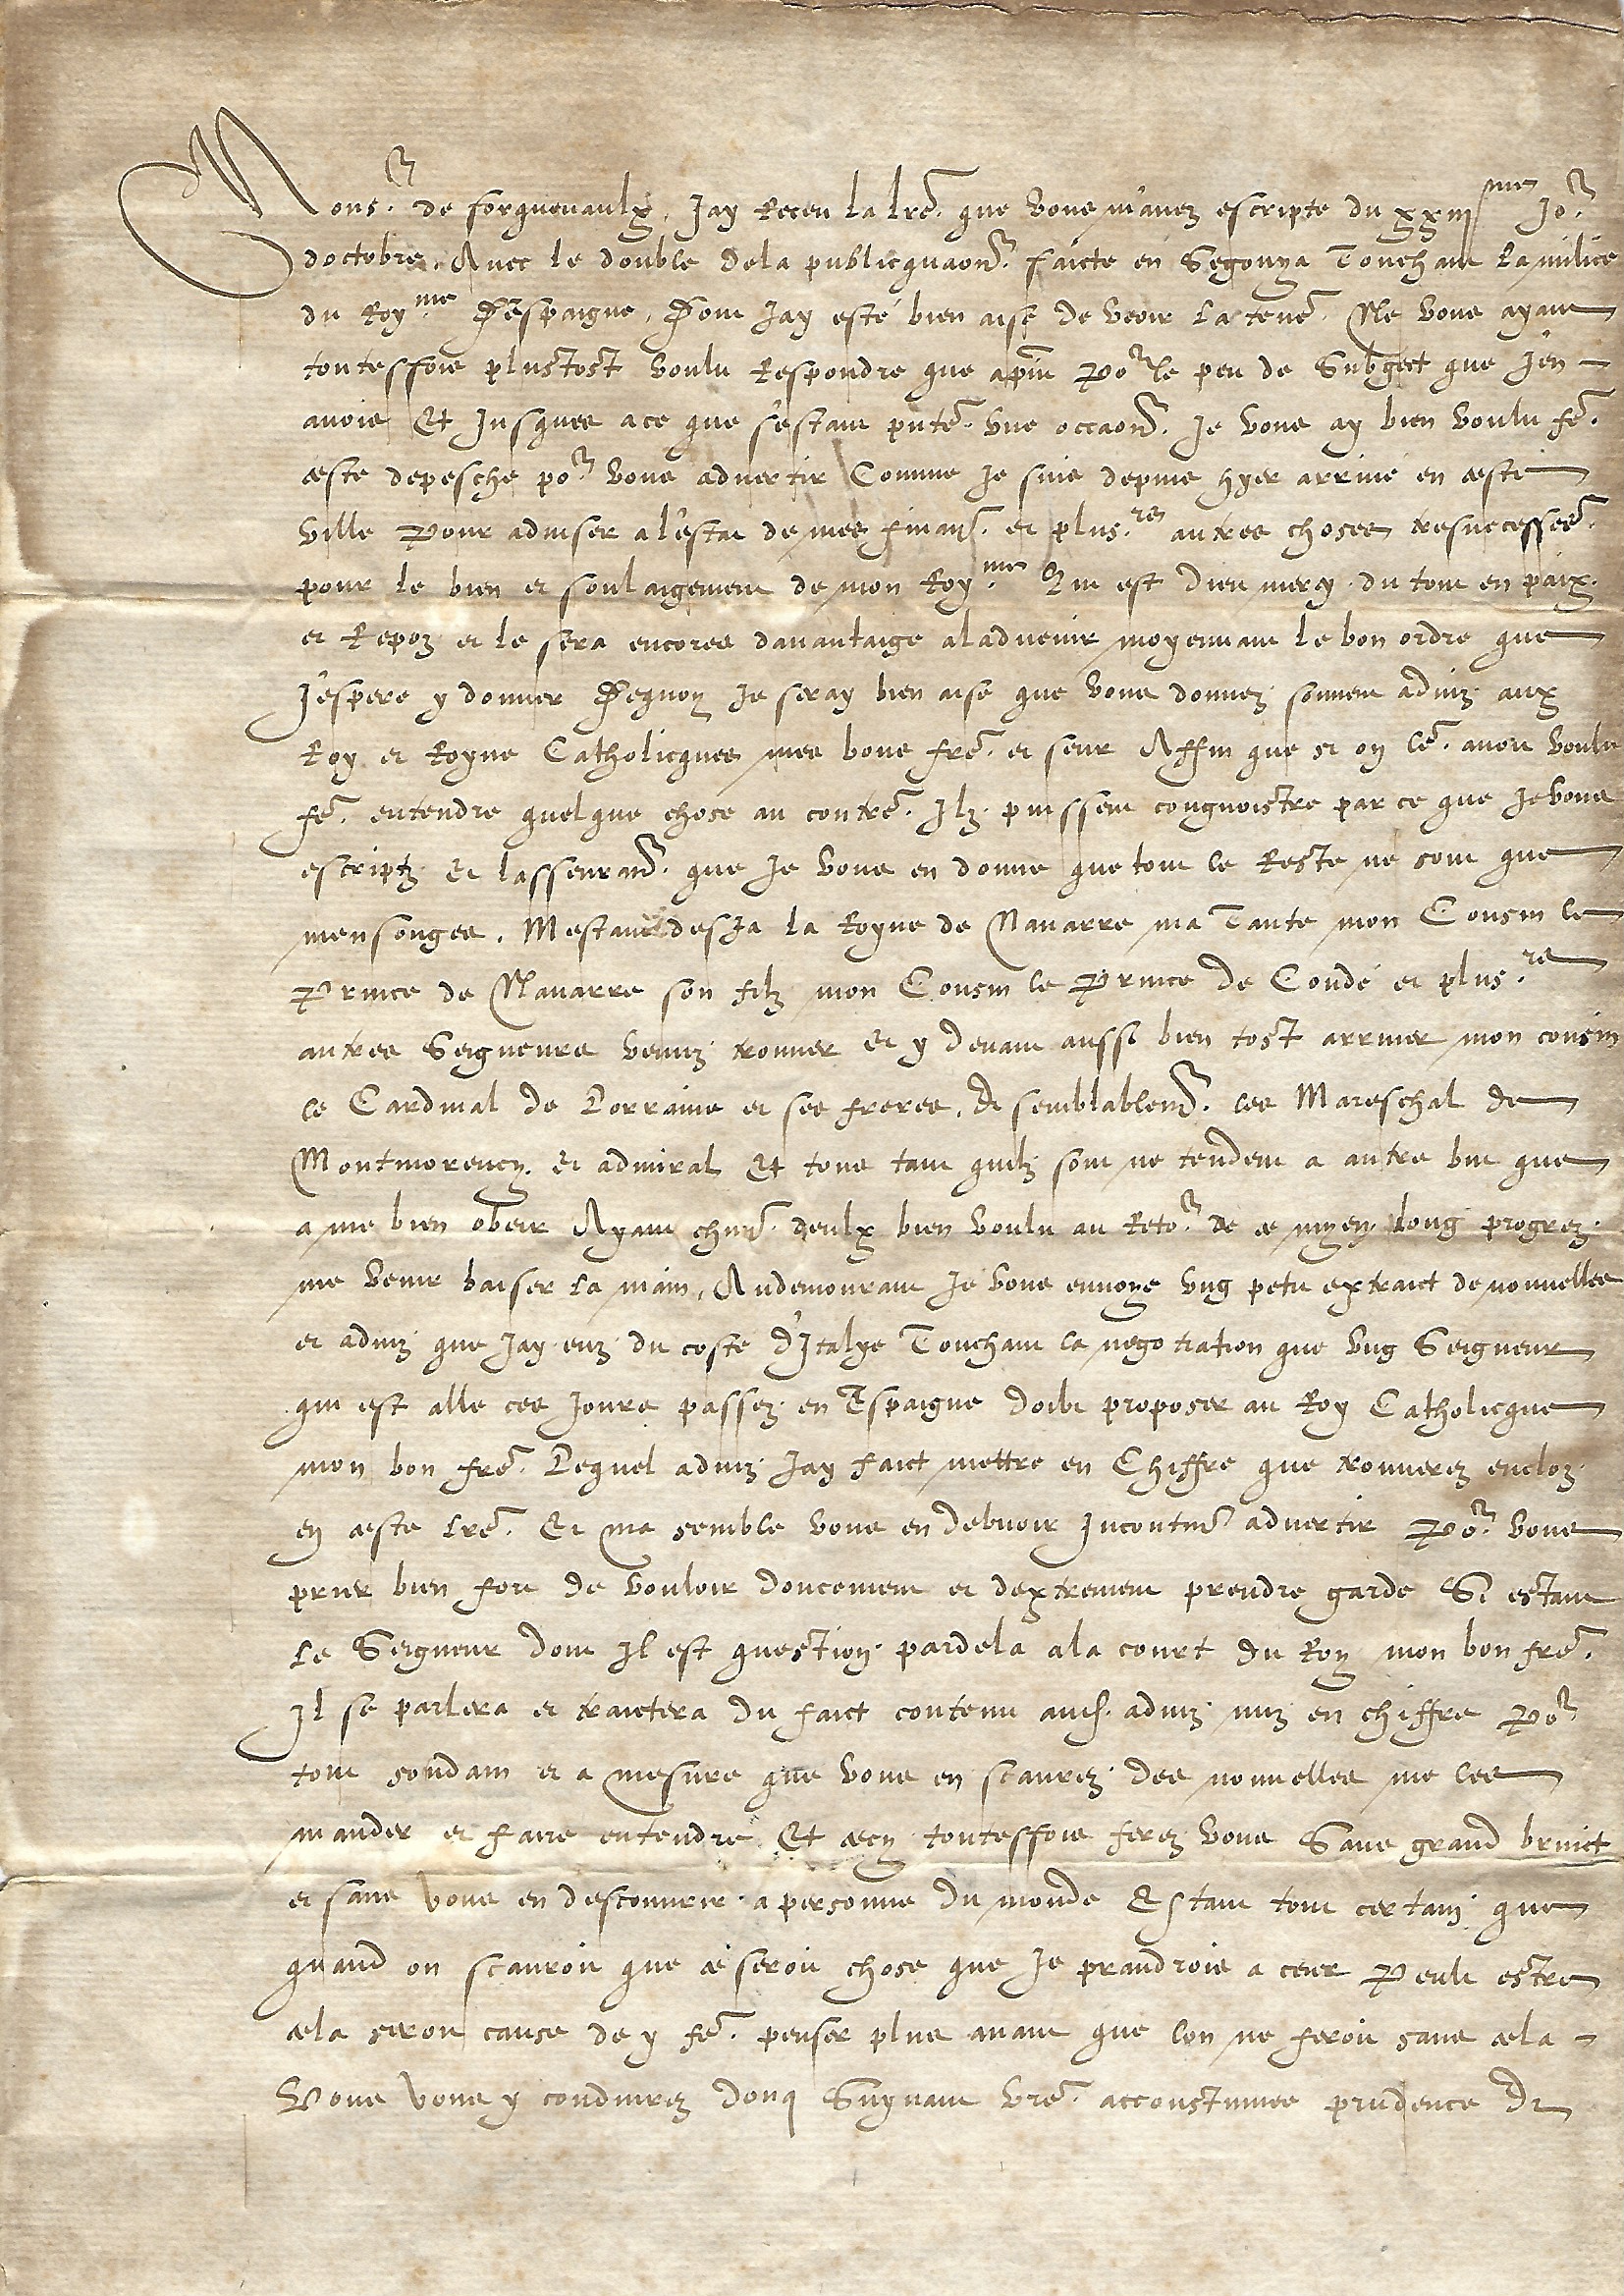 Monsr. de forquevaulx, Jay Receu la lre. que vous m'avez escripte du xxiiiime Jor
doctobre, Avec le double dela publicquaon. faicte en Segovya Touchant la milice
du Royme. D'Espaigne, Dont Jay esté bien aise de veoir la tenr. Ne vous ayant
toutesfois plustost voulu Respondre que apnt por le peu de Subgect que j'en
avois Et Jusques a ce que s'estant pntée. une occaon. Je vous ay bien voulu fe.
ceste depesche por vous advertir Comme Je suis depuis hyer arrivé en ceste
ville pour adviser a l'estat de mes finans. et plusrs. autres choses tresnecesses.
pour le bien et soulaigement de mon Royme. Qui est dieu mercy du tout en paix
et Repoz et le sera encores davantaige aladvenir moyennant le bon ordre que
J'espere y donner Dequoy Je seray bien aise que vous donnez souvent adviz aux
Roy et Royne Catholicques mes bons fre. et seur Affin que si on les. avoit voulu
fe. entendre quelque chose au contre. Ilz puissent congnoistre par ce que Je vous
escriptz Et lasseurance que Je vous en donne que tout le Reste ne sont que
mensonges. M'estant desJa la Royne de Navarre ma Tante mon Cousin le
Prince de Navarre son filz mon Cousin le Prince de Condé et plusrs.
autres Seigneurs venuz trouver Et y devant aussi bien tost arriver mon cousin
le Cardinal de Lorraine et ses freres, Et semblablemt. les Mareschal de
Montmorency et admiral Et tous tant quilz sont ne tendent a autre but que
a me bien obeir Ayant chun. deulx bien voulu au Retor. de ce myen long progrez
me venir baiser la main, Audemourant Je vous envoye ung petit extraict de nouvelles
et adviz que Jay euz du costé d'Italye Touchant la negotiation que ung Seigneur
qui est allé ces Jours passez en Espaigne doibt proposer au Roy Catholicque
mon bon fre. Lequel adviz Jay faict mettre en Chiffre que trouverez encloz
en ceste lre. Et ma semblé vous en debvoir Incontint advertir Por vous
prier bien fort de vouloir doucement et dextrement prendre garde Si estant
le Seigneur dont Il est question pardela ala court du Roy mon bon fre.
Il se parlera et traictera du faict contenu aud. adviz mis en chiffre Por
tout soudain et a mesure que vous en scaurez des nouvelles me les
mander et faire entendre Et cecy toutesfois ferez vous Sans grand bruict
et sans vous en descouvrir a personne du monde Estant tout certain que
quand on scauroit que ce seroit chose que Je prandrois a ceur Peult estre
cela seroit cause de y fe. penser plus avant que lon ne feroit sans cela
Vous vous y conduirez donq Suyvant vre. accoustumee prudence Et